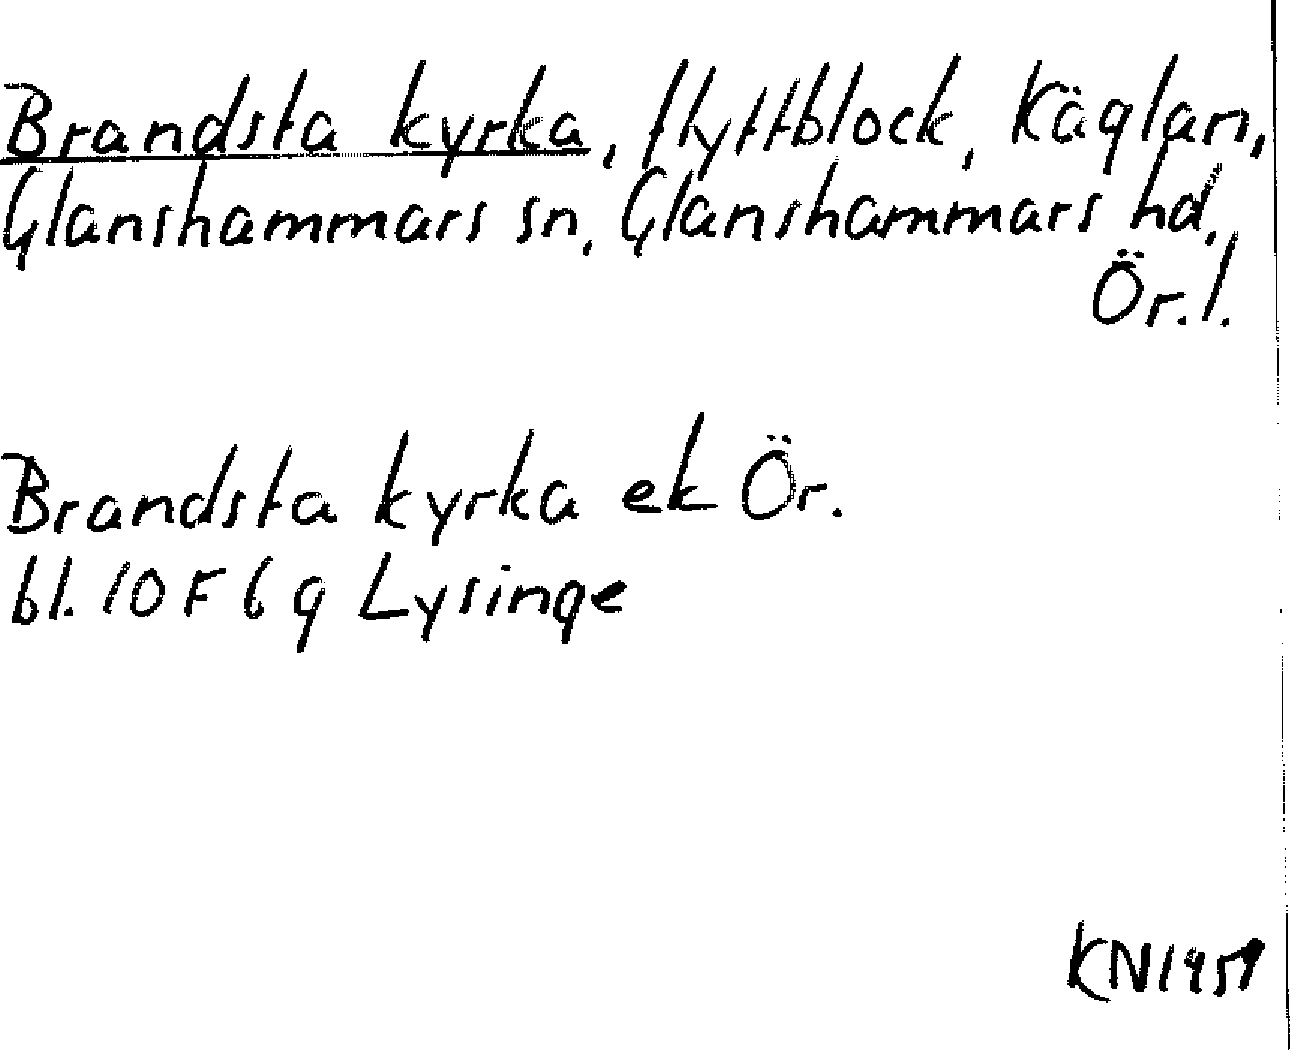 Brandsta kyrka, flyttblock, Käglan,
Glanshammars sn, Glanshammars hd,
Ör.l.
Brandsta kyrka ek Ör.
bl. 10 F 6 g Lysinge
KN 1959